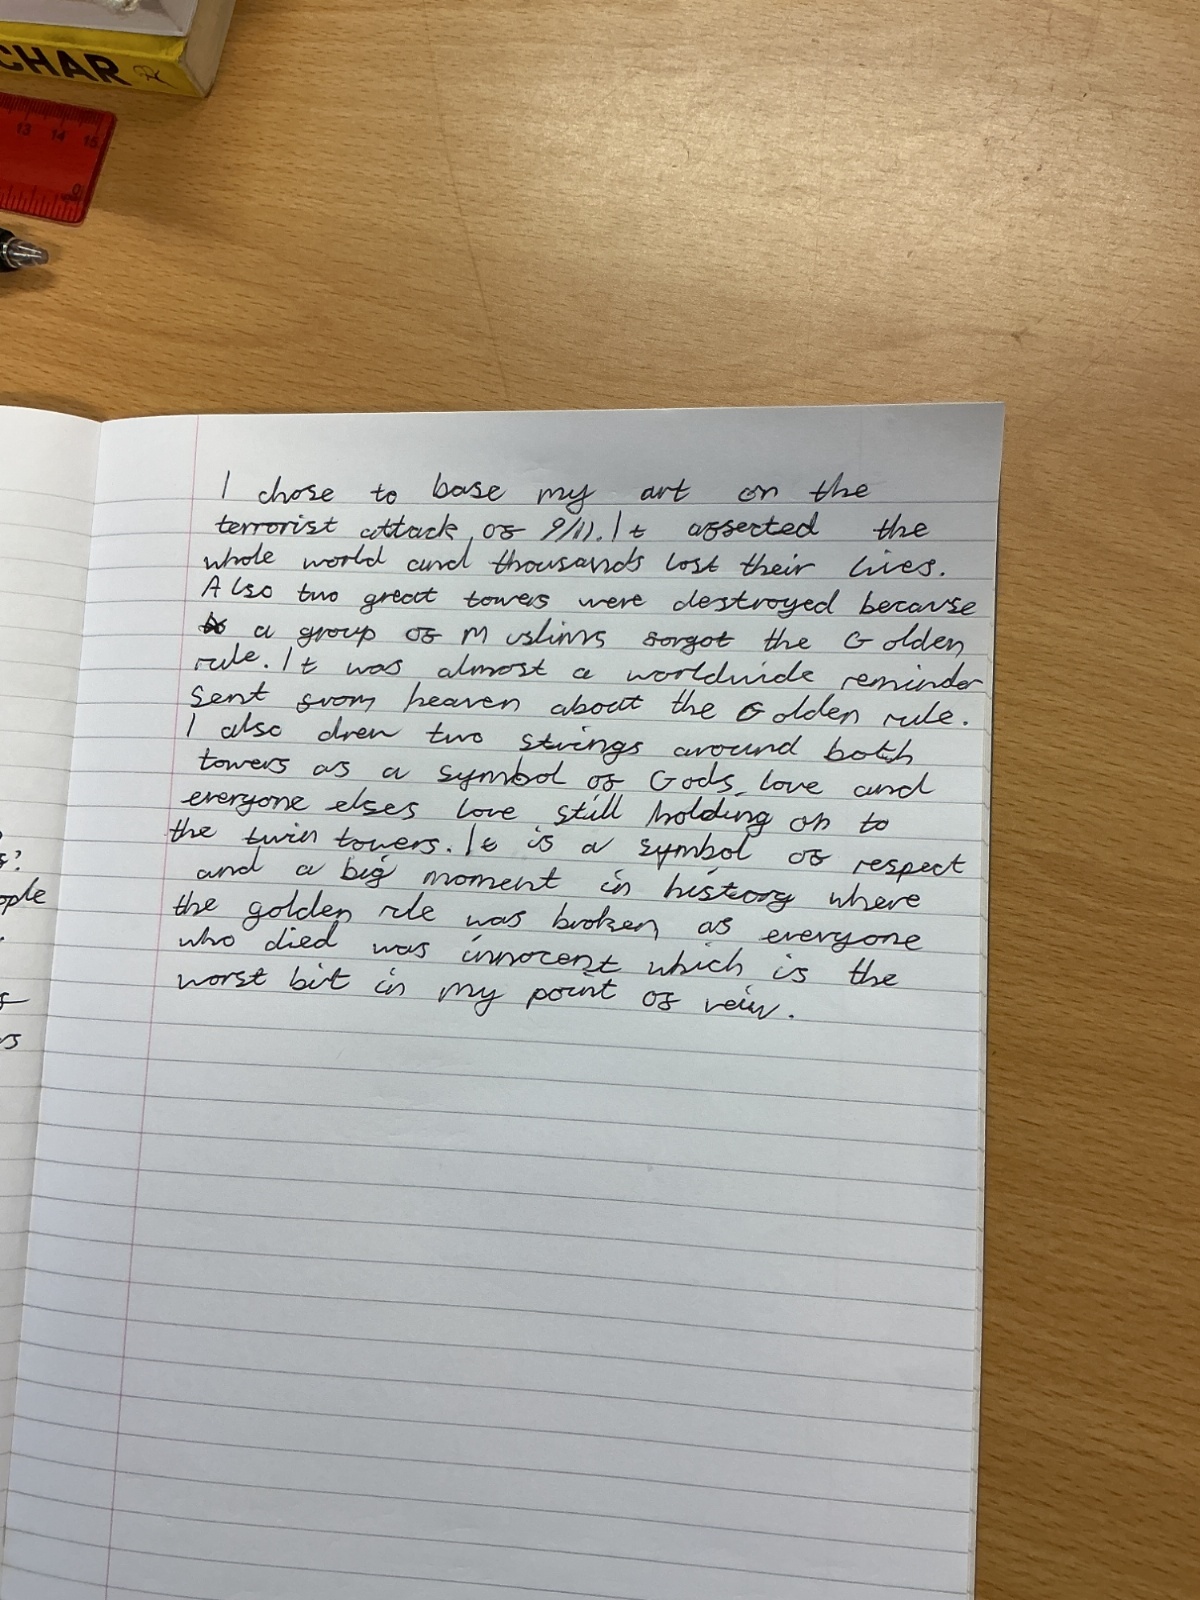 CHAR
13 14 15
I chose to base my art on the
terrorist attack of 9/11. It affected the
whole world and thousands lost their lives.
Also two great towers were destroyed because
a group of Muslims forgot the Golden
rule. It was almost a worldwide reminder
sent from heaven about the Golden rule.
I also drew two strings around both
towers as a symbol of Gods love and
everyone elses love still holding on to
the twin towers. It is a symbol of respect
and a big moment in history where
the golden rule was broken as everyone
who died was innocent which is the
worst bit in my point of veiw.